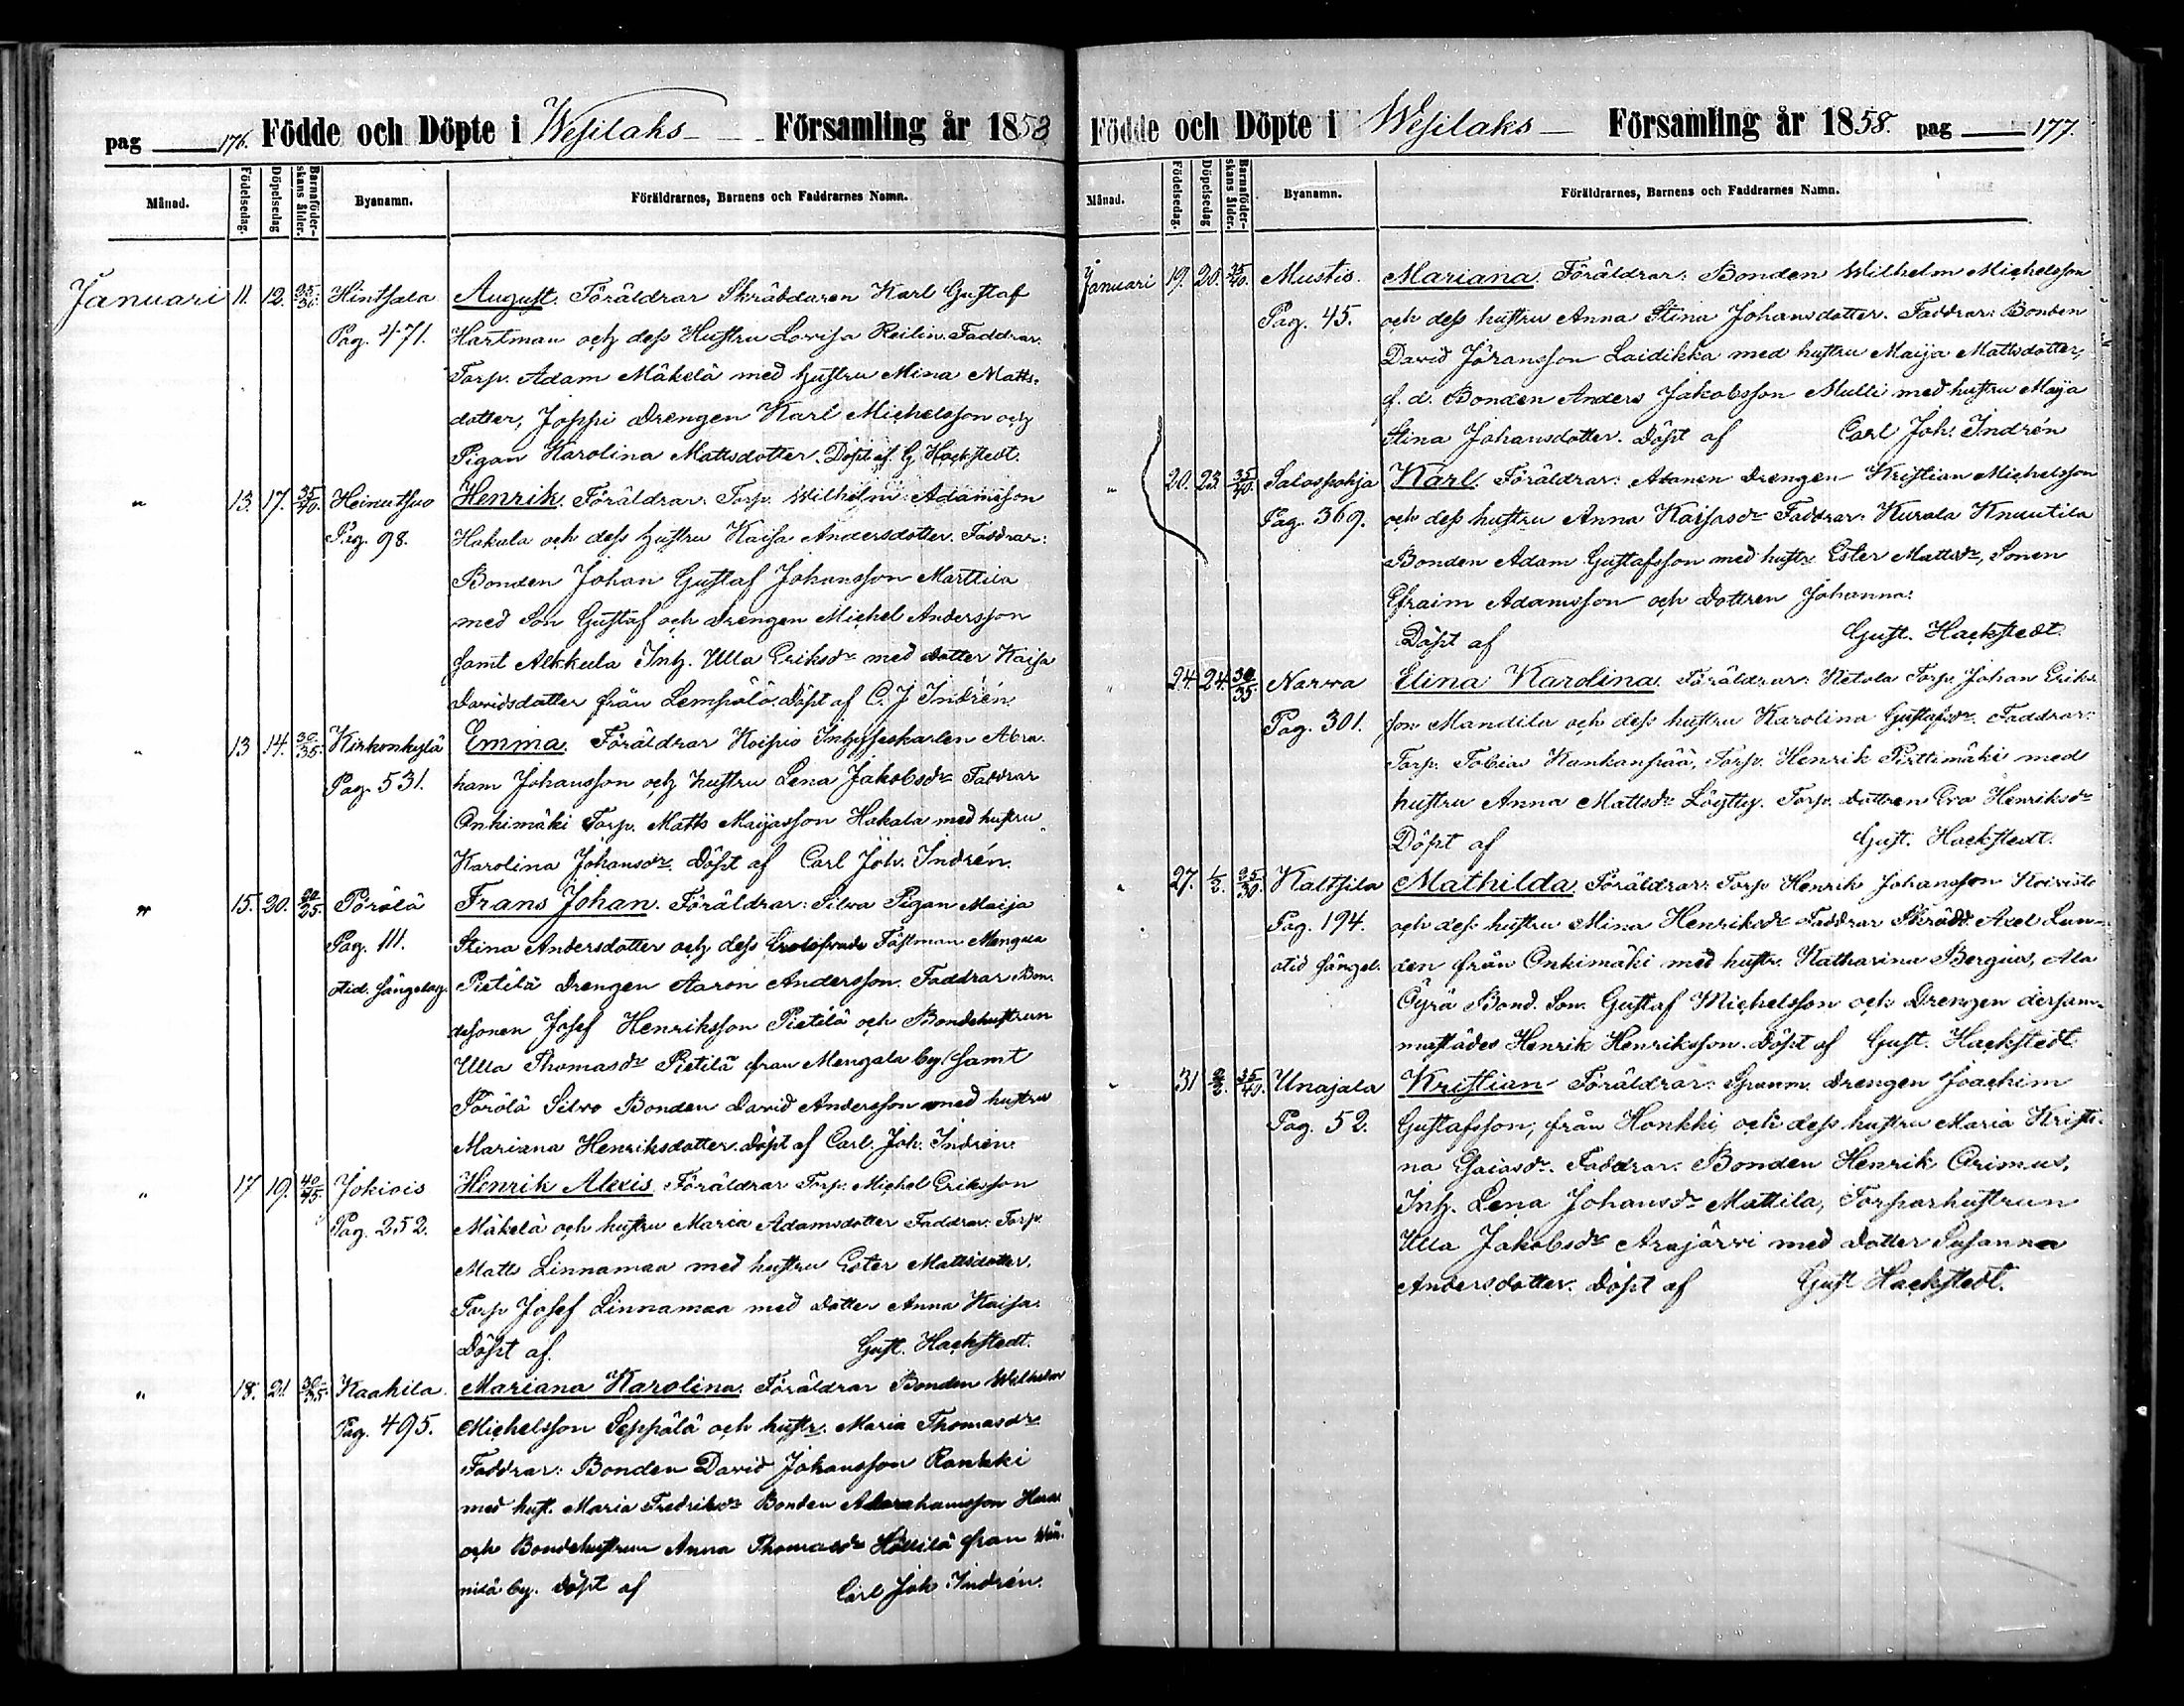 pag 176. Födde och Döpte i Wesilaks Församling år 1858
Månad. Födelsedag. Döpelsedag Barnaföderskans ålder. Byanamn. Föräldrarnes, Barnens och Faddrarnes Namn.
Januari 11. 12. 25/30. Hintsala August. Föräldrar Skräddaren Karl Gustaf
Pag. 471. Hartman och dess Hustru Lovisa Reilin. Faddrar:
Torp. Adam Mäkelä med hustru Mina Matts-
dotter, Joppi Drengen Karl Michelsson och
Pigan Karolina Mattsdotter. Döpt af G Hackstedt.
" 13. 17. 35/40. Heinutsuo Henrik. Föräldrar: Torp. Wilhelm Adamsson
Pag. 98. Hakala och dess hustru Kaisa Andersdotter. Faddrar:
Bonden Johan Gustaf Johansson Marttila
med Son Gustaf och Drengen Michel Andersson
samt Alkkula Inh. Ulla Eriksdr med dotter Kaisa
Davidsdotter från Lempälä. Döpt af C. J Indrén.
" 13 14. 30/35. Kirkonkylä Emma. Föräldrar Koipio Inhyseskarlen Abra-
Pag. 531. ham Johansson och hustru Lena Jakobsdr Faddrar
Onkimäki Torp. Matts Maijasson Hakala med hustru
Karolina Johansdr. Döpt af Carl Joh. Indrén.
" 15. 20. 20/25. Pörölä Frans Johan. Föräldrar: Silvo Pigan Maija
Pag. 111. Stina Andersdotter och dess trolofvade Fästman Mengala
Pietilä Drengen Aaron Andersson. Faddrar Bon-
desonen Josef Henriksson Pietilä och Bondehustrun
Ulla Thomasdr Pietilä fran Mengala by samt
Pörölä Silvo Bonden David Andersson med hustru
Mariana Henriksdotter. Döpt af Carl. Joh. Indrén.
" 17 19. 40/45 Jokiois Henrik Alexis. Föräldrar Torp. Michel Eriksson
Pag. 252. Mäkelä och hustru Maria Adamsdotter Faddrar: Torp.
Matts Linnamaa med hustru Ester Mattsdotter.
Torp Josef Linnamaa med dotter Anna Kaisa.
Döpt af. Gust. Hackstedt.
" 18. 21 30/35. Kaakila. Mariana Karolina. Föräldrar Bonden Wilhelm
Pag. 495. Michelsson Seppälä och hustr. Maria Thomasdr
Faddrar: Bonden David Johansson Rankki
med hust. Maria Fredriksdr Bonden
och Bondehustrun Anna Thomasdr från
nilä by. Döpt af Carl Joh Indrén.
Födde och Döpte i Wesilaks Församling år 1858. pag 177.
Månad. Födelsedag. Döpelsedag Barnaföderskans ålder. Byanamn. Föräldrarnes, Barnens och Faddrarnes Namn.
Januari 19. 20. 35/40. Mustis. Mariana. Föräldrar: Bonden Wilhelm Michelsson
Pag. 45. och dess hustru Anna Stina Johansdotter. Faddrar: Bonden
David Jöransson Laidikka med hustru Maija Mattsdotter,
f. d. Bonden Anders Jakobsson Mulli med hustru Maija
Stina Johansdotter. Döpt af Carl Joh. Indrén
" 20. 23. 35/40. Salospohja Karl. Föräldrar: Drengen Kristian Michelsson
Pag. 369. och dess hustru Anna Kaisasdr Faddrar: Kurala Knuutila
Bonden Adam Gustafsson med hustr. Ester Mattsdr, Sonen
Efraim Adamsson och dottren Johanna:
Döpt af Gust. Hackstedt.
" 24. 24. 30/35 Narva Elina Karolina. Föräldrar: Ketola Torp. Johan Eriks-
Pag. 301. son Mandila och dess hustru Karolina Gustafsdr. Faddrar:
Torp. Tobias Kankanpää, Torp. Henrik Pirttimäki med
hustru Anna Mattsdr Löytty. Torp. dottren Eva Henriksdr
Döpt af Gust. Hackstedt.
" 27. 1/3. 25/30. Kaltsila Mathilda. Föräldrar: Torp Henrik Johansson Koivisto
Pag. 194. och dess hustru Mina Henriksdr Faddrar Skrädd. Axel Lun-
den från Onkimäki med hustr. Katharina Bergius, Ala
Öyrä Bond. Son. Gustaf Michelsson och Drengen dersam-
mastädes Henrik Henriksson. Döpt af Gust. Hackstedt
" 31 35/40. Unajala Kristian Föräldrar: Spanm. Drengen Joachim
Pag. 52. Gustafsson, från Honkki och dess hustru Maria Kristi-
na Gaiasdr. Faddrar: Bonden Henrik Grimus,
Inh. Lena Johansdr Mattila, Torparhustrun
Ulla Jakobsdr Arajärvi med dotter Susanna
Andersdotter. Döpt af Gust Hackstedt.